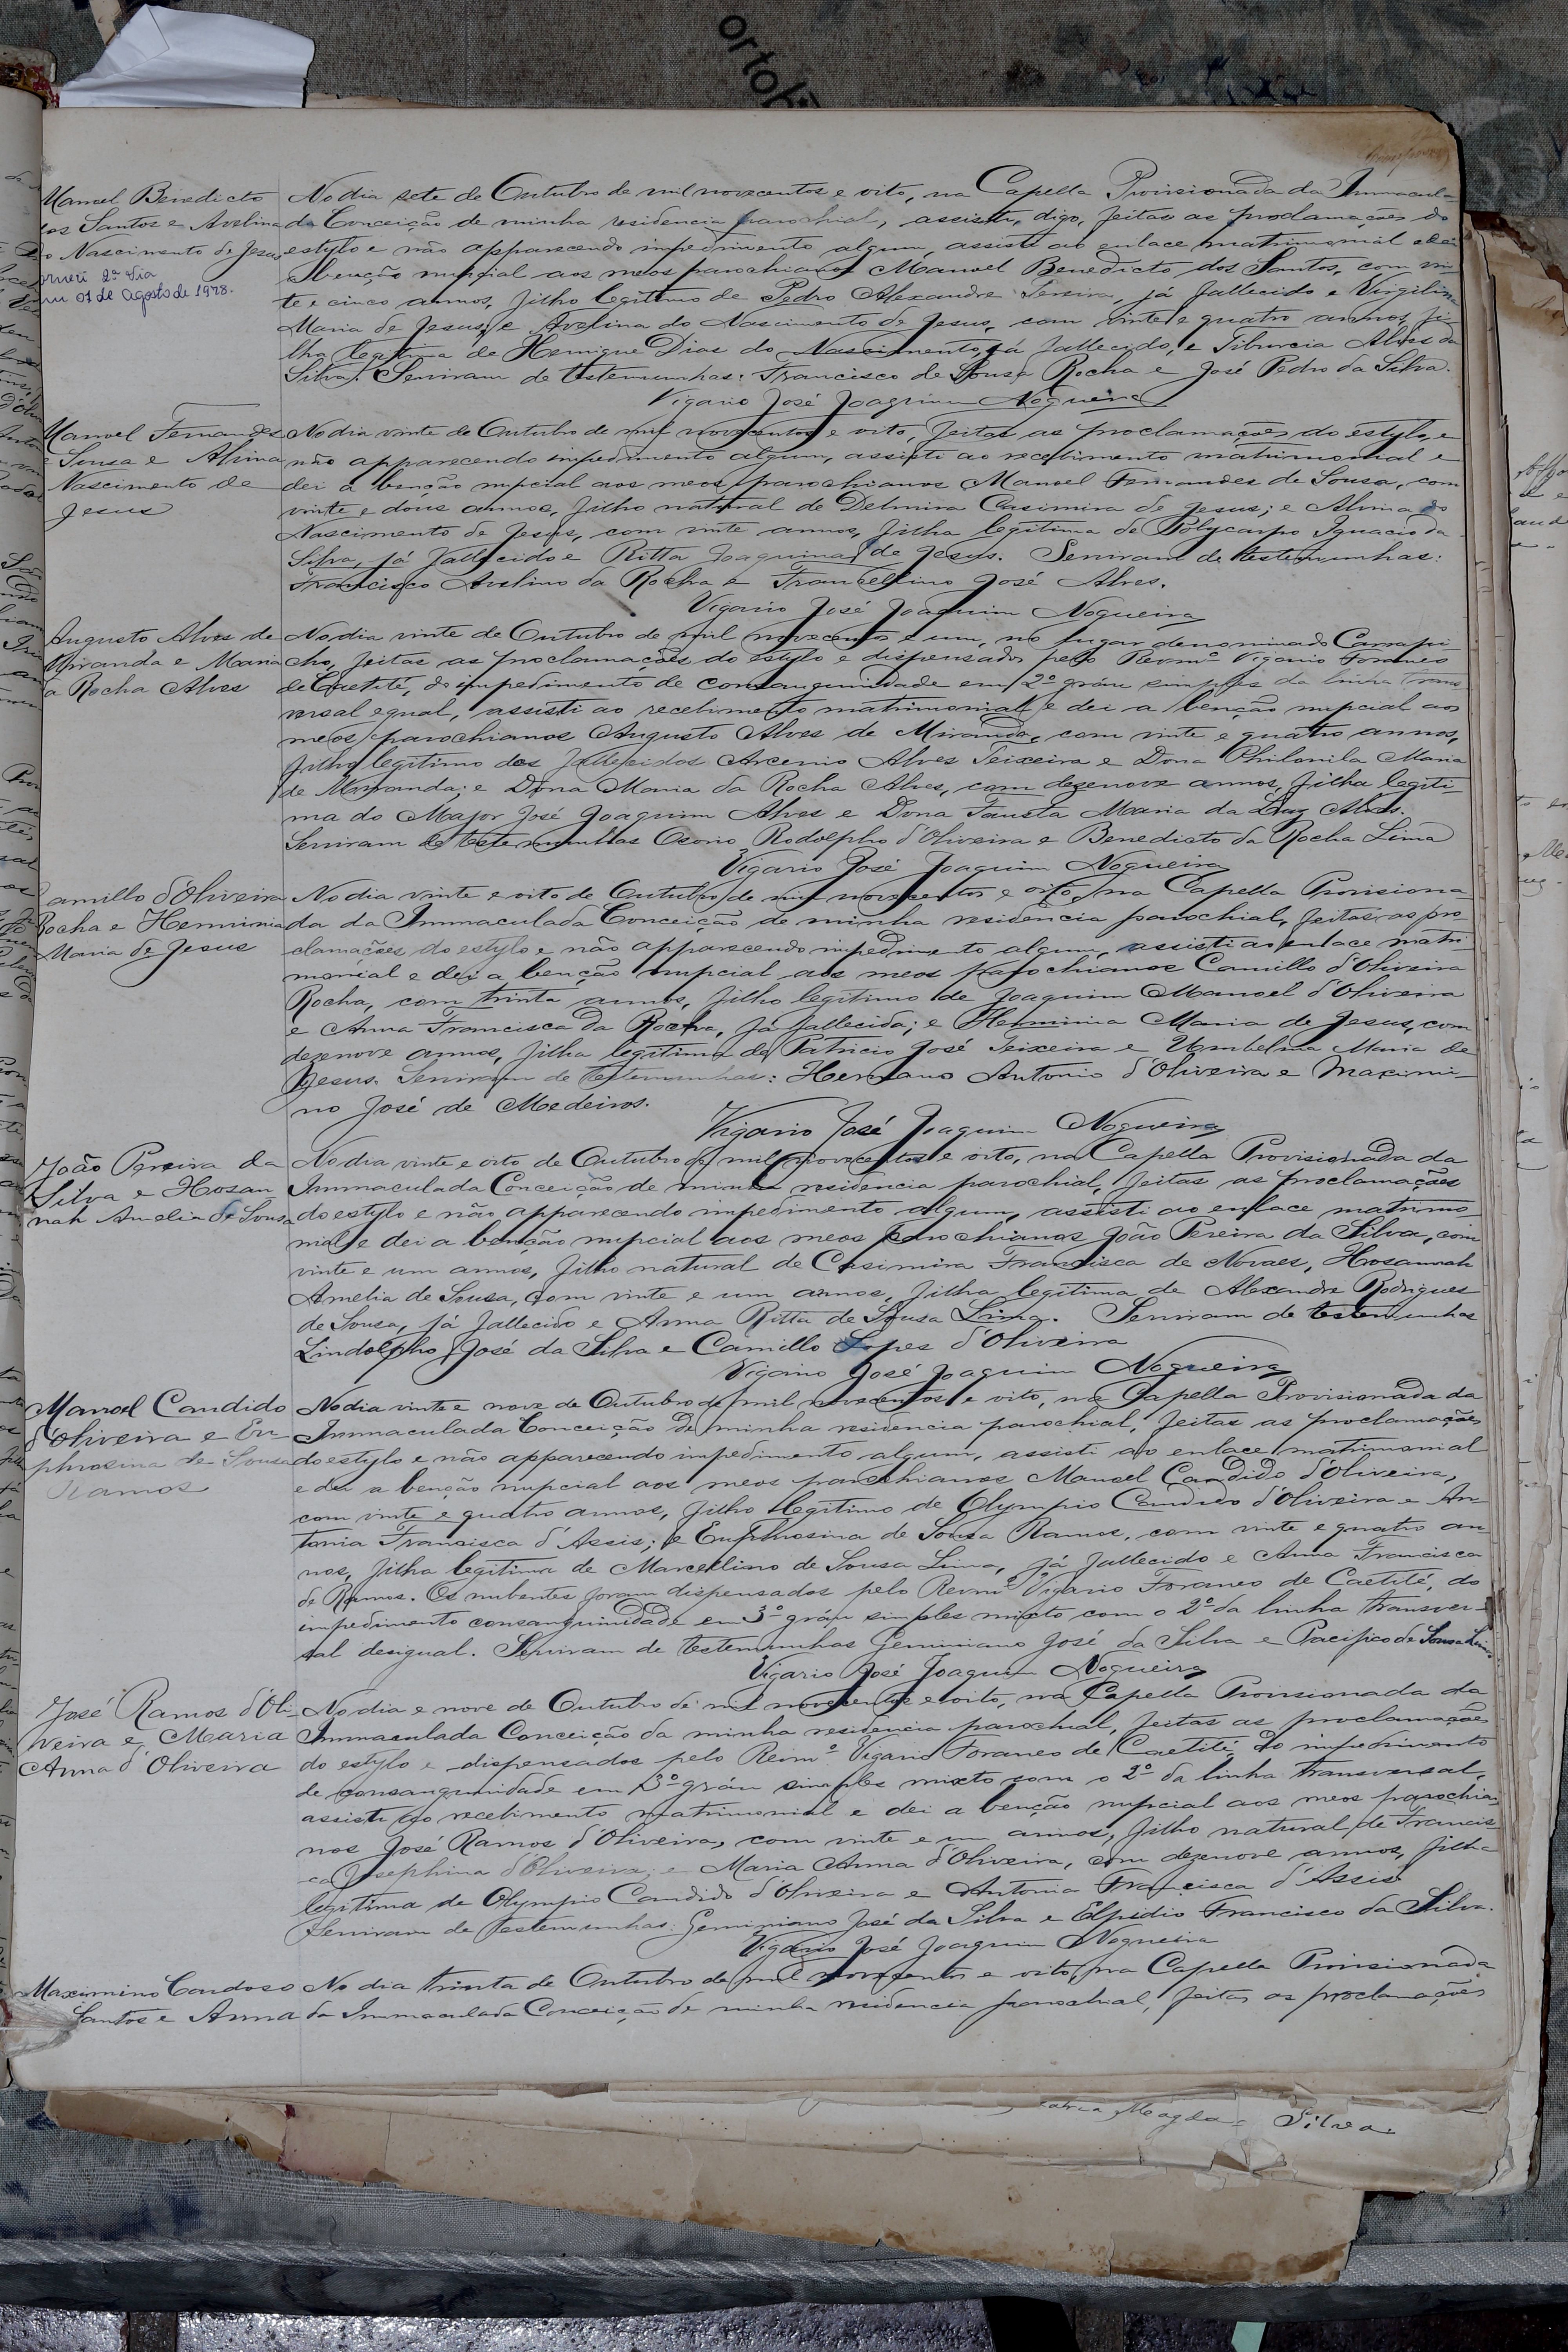 Manoel Benedicto
dos Santos e Avelina
do Nascimento de Jesus
2ª via
em 01 de Agosto de 1978.
No dia sete de Outubro de mil novecentos e oito, na Capella Provisionada da Immacula-
da Conceição de minha residencia parochial, assisti, digo, feitas as proclamações do
estylo e não apparecendo impedimento algum, assisti ao enlace matrimonial e dei
a benção nupcial aos meos parochianos Manoel Benedicto dos Santos, com vin-
te e cinco annos, filho legitimo de Pedro Alexandre Pereira, já fallecido e Virgilina
Maria de Jesus; e Avelina do Nascimento de Jesus, com vinte e quatro annos, fi-
lha legitima de Henrique Dias do Nascimento, já fallecido, e Tiburcia Alves da
Silva. Serviram de testemunhas: Francisco de Sousa Rocha e José Pedro da Silva.
Vigario José Joaquim Nogueira
Manoel Fernandes
e Sousa e Alvina
Nascimento de
Jesus
No dia vinte de Outubro de mil novecentos e oito, feitas as proclamações do estylo, e
não apparecendo impedimento algum, assisti ao recebimento matrimonial e
dei a benção nupcial aos meos parochianos Manoel Fernandes de Sousa, com
vinte e dous annos, filho natural de Delmira Casimira de Jesus; e Alvina do
Nascimento de Jesus, com vinte annos, filha legitima de Polycarpo Ignacio da
Silva, já fallecido e Ritta Joaquina de Jesus. Serviram de testemunhas:
Francisco Avelino da Rocha e Francellino José Alves.
Vigario José Joaquim Nogueira
Augusto Alves de
Miranda e Maria
a Rocha Alves
No dia vinte de Outubro de mil novecentos e um, no lugar denominado Carrapi-
cho, feitas as proclamações do estylo e dispensados pelo Revmº Vigario Foraneo
de Caetité, do impedimento de consanguinidade em 2º gráu simples da linha trans-
versal egual, assisti ao recebimento matrimonial e dei a benção nupcial aos
meos parochianos Augusto Alves de Miranda, com vinte e quatro annos,
filho legitimo dos fallecidos Arcenio Alves Teixeira e Dona Philonila Maria
de Miranda; e Dona Maria da Rocha Alves, com dezenove annos, filha legiti-
ma do Major José Joaquim Alves e Dona Fausta Maria da Alves.
Serviram de testemunhas Osorio Rodolpho d'Oliveira e Benedicto da Rocha Lima
Vigario José Joaquim Nogueira
Camillo d'Oliveira
Rocha e Herminia
Maria de Jesus
No dia vinte e oito de Outubro de mil novecentos e oito, na Capella Provisiona-
da da Immaculada Conceição de minha residencia parochial, feitas as pro-
clamações do estylo e não apparecendo impedimento algum, assisti ao enlace matri-
monial e dei a benção nupcial aos meos parochianos Camillo d'Oliveira
Rocha, com trinta annos, filho legitimo de Joaquim Manoel d'Oliveira
e Anna Francisca da Rocha, já fallecida; e Herminia Maria de Jesus, com
dezenove annos, filha legitima de Patricio José Teixeira e Umbelina Maria de
Jesus. Serviram de testemunhas: Hermano Antonio d'Oliveira e Maximi-
no José de Medeiros.
Vigario José Joaquim Nogueira
João Pereira da
Silva e Hosan-
nah Amelia de Sousa
No dia vinte e oito de Outubro de mil novecentos e oito, na Capella Provisionada da
Immaculada Conceição de minha residencia parochial, feitas as proclamações
do estylo e não apparecendo impedimento algum, assisti ao enlace matrimo-
nial e dei a benção nupcial aos meos parochianos João Pereira da Silva, com
vinte e um annos, filho natural de Casimira Francisca de Novaes, Hosannah
Amelia de Sousa, com vinte e um annos, filha legitima de Alexandre Rodrigues
de Sousa, já fallecido e Anna Ritta de Sousa Lima. Serviram de testemunhas
Lindolpho José da Silva e Camillo Lopes d'Oliveira
Vigario José Joaquim Nogueira
Manoel Candido
d'Oliveira e Eu-
phrosina de Sousa
Ramos
No dia vinte e nove de Outubro de mil novecentos e oito, na Capella Provisionada da
Immaculada Conceição de minha residencia parochial, feitas as proclamações
do estylo e não apparecendo impedimento algum, assisti ao enlace matrimonial
e dei a benção nupcial aos meos parochianos Manoel Candido d'Oliveira,
com vinte e quatro annos, filho legitimo de Olympio Candido d'Oliveira e An-
tonia Francisca d'Assis; e Euphrosina de Sousa Ramos, com vinte e quatro an-
nos, filha legitima de Marcellino de Sousa Lima, já fallecido e Anna Francisca
de Ramos. Os nubentes foram dispensados pelo Revmº Vigario Foraneo de Caetité, do
impedimento consanguinidade em 3º gráu simples mixto com o 2º da linha transver-
sal desigual. Serviram de testemunhas Geminiano José da Silva e Pacifico de Sousa Lima.
Vigario José Joaquim Nogueira
José Ramos d'Oli-
veira e Maria
Anna d'Oliveira
No dia e nove de Outubro de mil novecentos e oito, na Capella Provisionada da
Immaculada Conceição da minha residencia parochial, feitas as proclamações
do estylo e dispensados pelo Revmº Vigario Foraneo de Caetité, do impedimento
de consanguinidade em 3º gráu simples mixto com o 2º da linha transversal,
assisti ao recebimento matrimonial e dei a benção nupcial aos meos parochia-
nos José Ramos d'Oliveira, com vinte e um annos, filho natural de Francis-
ca Josephina d'Oliveira; e Maria Anna d'Oliveira, com dezenove annos, filha
legitima de Olympio Candido d'Oliveira e Antonia Francisca d'Assis
Serviram de testemunhas: Geminiano José da Silva e Elpidio Francisco da Silva.
Vigario José Joaquim Nogueira
Maximino Cardoso
Santos e Anna
No dia trinta de Outubro de mil novecentos e oito, na Capella Provisionada
da Immaculada Conceição de minha residencia parochial, feitas as proclamações
Magda Silva